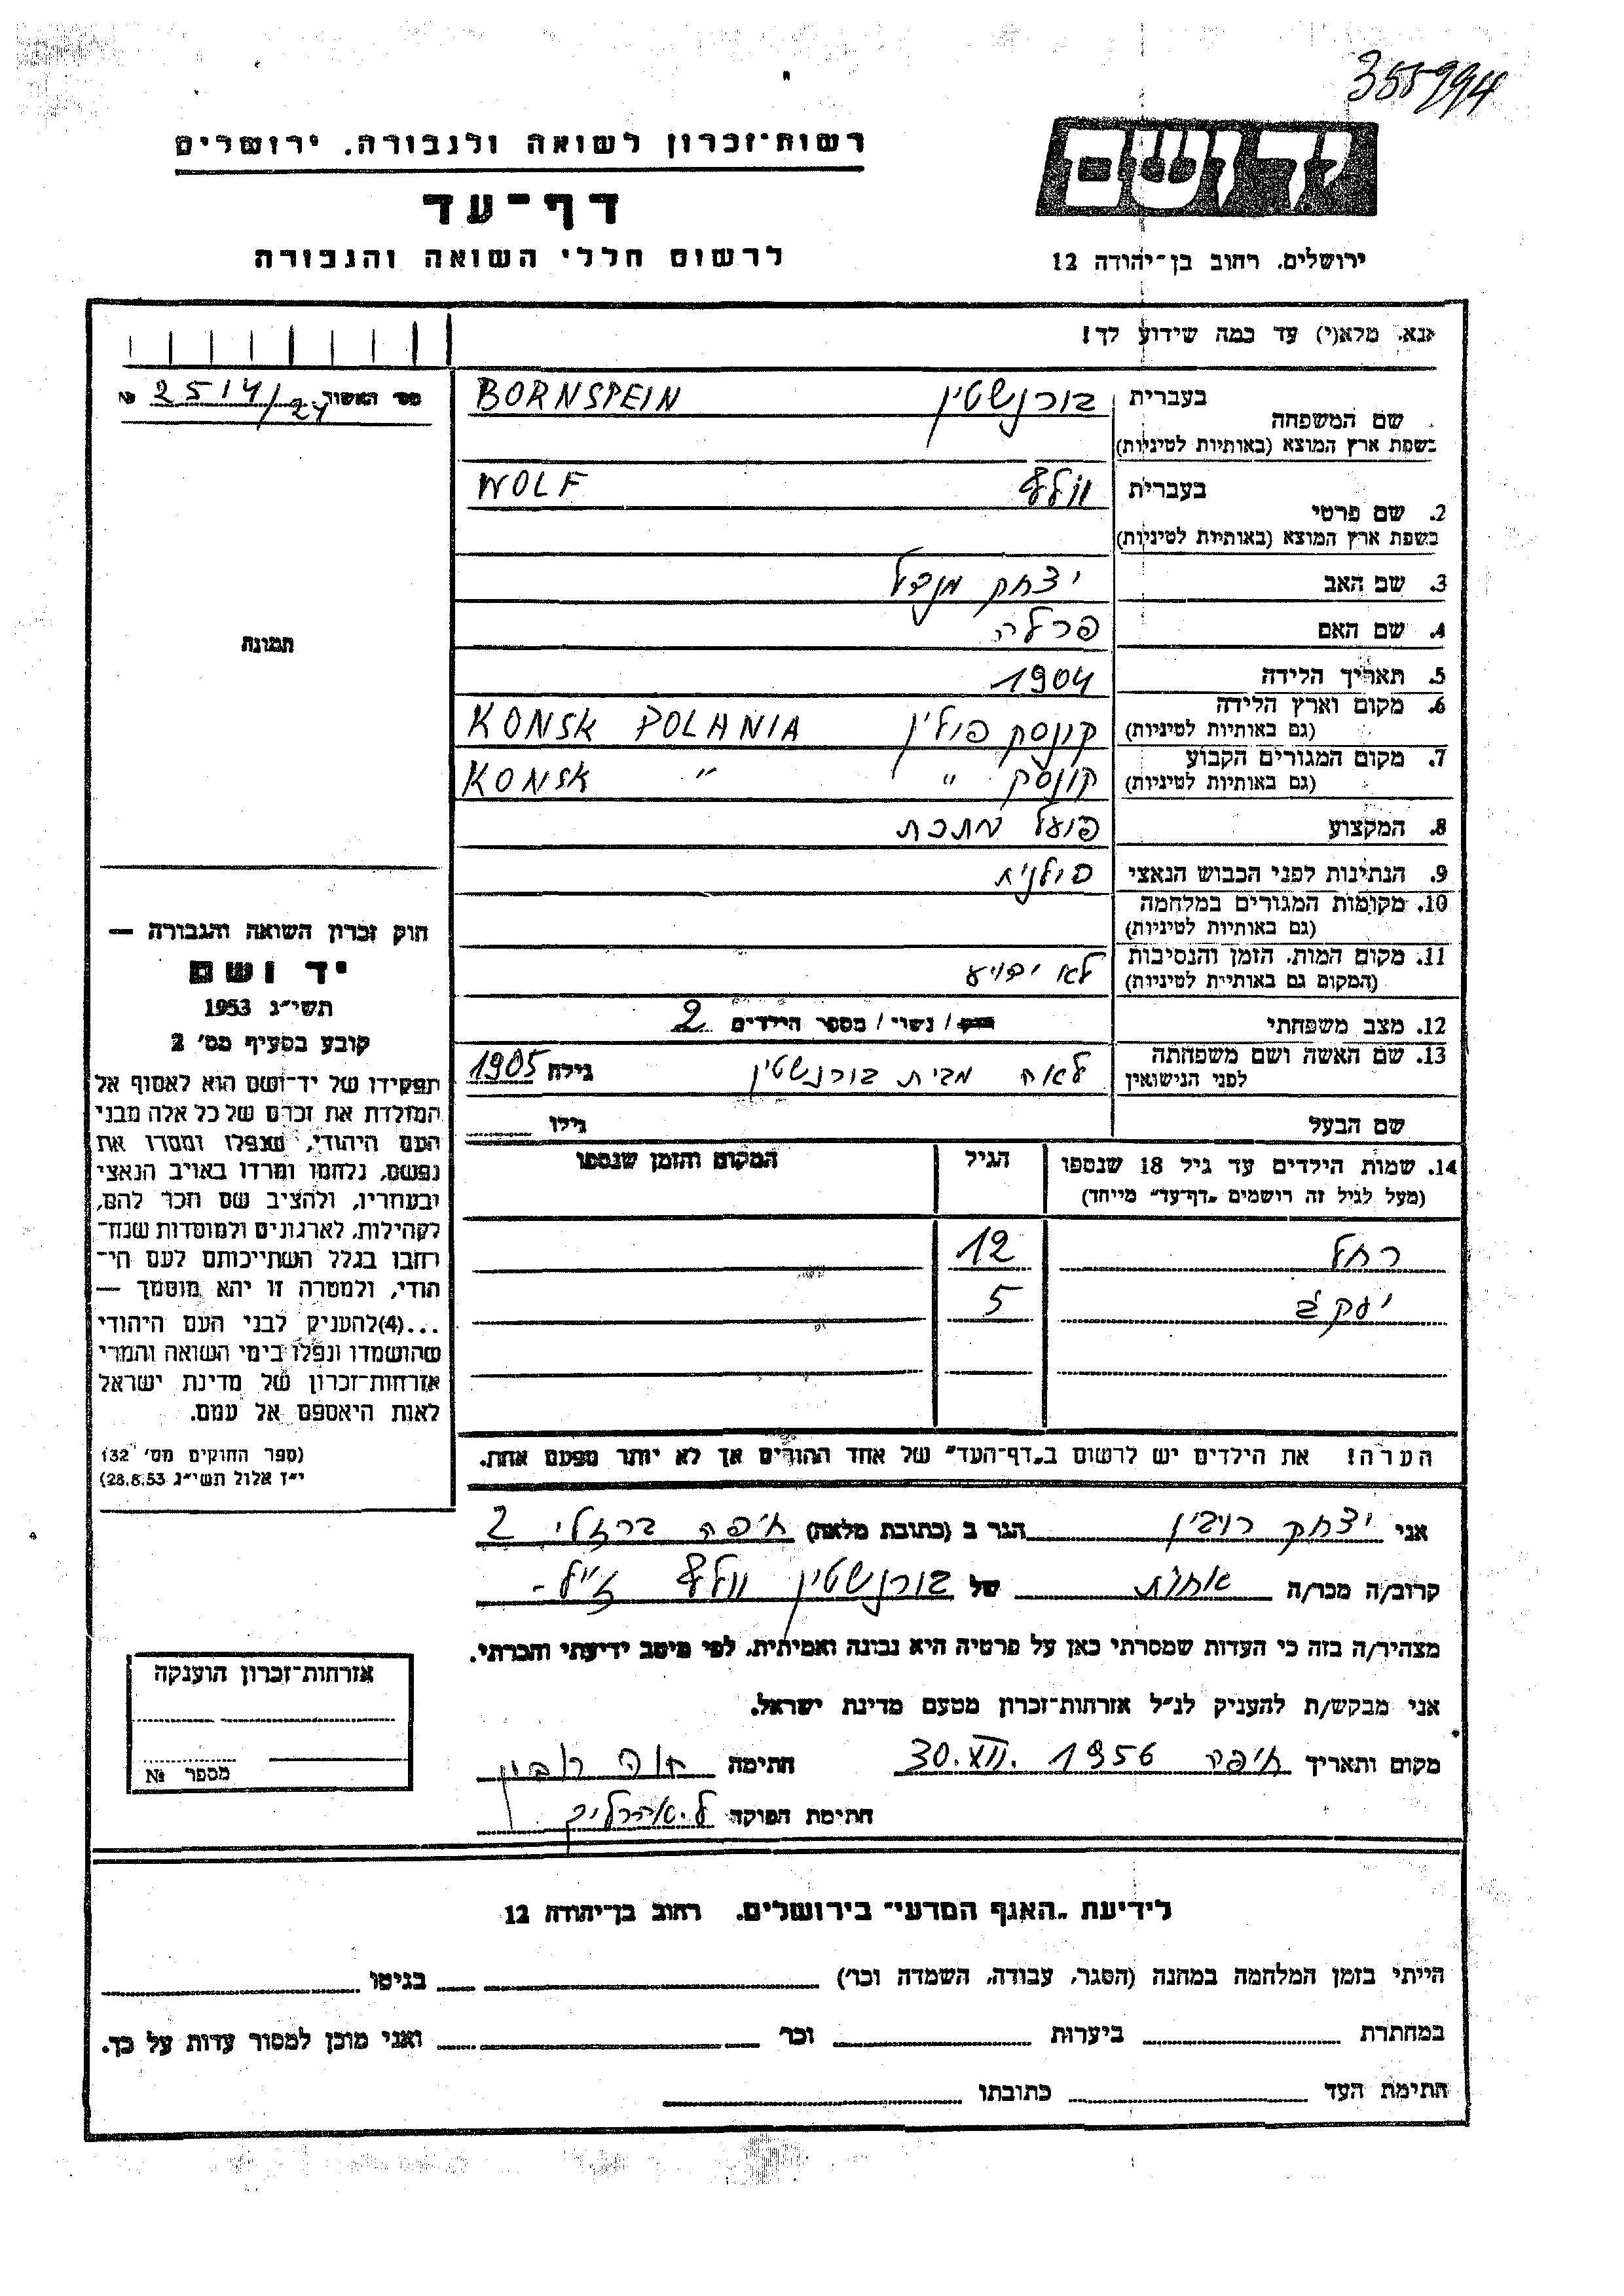 355994
יד ושם
ירושלים. רחוב בן־יהודה 12
רשות־זכרון לשואה ולגבורה. ירושלים
דף־עד
לרשום חללי השואה והגבורה
אנא. מלא(י) עד כמה שידוע לך!
מס׳ האשור 2514/24 №
שם המשפחה
בעברית בורנשטין BORNSPEIN
בשפת ארץ המוצא (באותיות לטיניות)
2. שם פרטי
בעברית וולף WOLF
בשפת ארץ המוצא (באותיות לטיניות)
3. שם האב יצחק מנדל
4. שם האם פרלה
5. תאריך הלידה 1904
6. מקום וארץ הלידה קונסק פולין KONSK POLANIA
(גם באותיות לטיניות)
7. מקום המגורים הקבוע קונסק " KONSK "
(גם באותיות לטיניות)
8. המקצוע פועל מתכת
9. הנתינות לפני הכבוש הנאצי פולנית
10. מקומות המגורים במלחמה
(גם באותיות לטיניות)
11. מקום המות. הזמן והנסיבות לא ידוע
(המקום גם באותיית לטיניות)
12. מצב משפחתי רוק / נשוי / מספר הילדים 2
13. שם האשה ושם משפחתה לאה מבית בורנשטין גילה 1905
לפני הנישואין
שם הבעל גילו
14. שמות הילדים עד גיל 18 שנספו הגיל המקום והזמן שנספו
(מעל לגיל זה רושמים „דף־עד" מייחד)
רחל 12
יעקב 5
הערה! את הילדים יש לרשום ב„דף־העד" של אחד ההורים אך לא יותר מפעם אחת.
תמונה
חוק זכרון השואה והגבורה —
יד ושם
תשי״ג 1953
קובע בסעיף מס׳ 2
תפקידו של יד־ושם הוא לאסוף אל
המולדת את זכרם של כל אלה מבני
העם היהודי, שנפלו ומסרו את
נפשם, נלחמו ומרדו באויב הנאצי
ובעוזריו, ולהציב שם וזכר להם,
לקהילות, לארגונים ולמוסדות שנח־
רחבו בגלל השתייכותם לעם הי־
הודי, ולמטרה זו יהא מוסמך —
...(4)להעניק לבני העם היהודי
שהושמדו ונפלו בימי השואה והמרי
אזרחות־זכרון של מדינת ישראל
לאות היאספם אל עמם.
(ספר החוקים מס׳ 132
י״ז אלול תשי״ג 28.8.53)
אני יצחק רובין הגר ב (כתובת מלאה) חיפה ברזלי 2
קרוב/ה מכר/ה אחות של בורנשטין וולף ז״ל-
מצהיר/ה בזה כי העדות שמסרתי כאן על פרטיה היא נכונה ואמיתית. לפי מיטב ידיעתי והכרתי.
אני מבקש/ת להעניק לנ״ל אזרחות־זכרון מטעם מדינת ישראל.
מקום ותאריך חיפה 30.XII.1956 חתימה חוה רובין
חתימת הפוקד
אזרחות־זכרון הוענקה
מספר №
לידיעת „האגף המדעי" בירושלים. רחוב בן־יהודה 12
הייתי בזמן המלחמה במחנה (הסגר, עבודה, השמדה וכו׳) בגיטו
במחתרת ביערות וכו׳ ואני מוכן למסור עדות על כך.
חתימת העד כתובתו